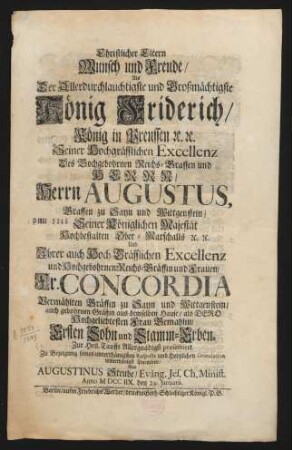 Christlicher Eltern
Wunsch und Freude/
Als
Der Allerdurchlauchtigste und Großmächtigste
König Friderich/
König in Preussen ꝛc. ꝛc.
Seiner Hochgräfflichen Excellenz
Des Hochgebohrnen Reichs-Graffen und
HERRN/
Herrn AUGUSTUS,
Graffen zu Sayn und Wittgenstein/
Seiner Königlichen Majestät
Hochbestalten Ober-Marschalls ꝛc. ꝛc.
Und
Ihrer auch Hoch Gräfflichen Excellenz
und Hochgebohrnen Reichs-Gräffin und Frauen/
Fr. CONCORDIA
Vermählten Gräffin zu Sayn und Wittgenstein/
auch gebohrnen Gräffin aus demselben Hause/ als DERO
Hochgeliebtesten Frau Gemahlin/
Ersten Sohn und Stamm-Erben.
Zur Heil. Tauffe Allergnädigst præsentiret
Zu Bezeigung seines unterthänigsten Respects und Hertzlichen Gratulation
Von
AUGUSTINUS Steube/ Evang. Jes. Ch. Minist.
Anno M DCC IIX. den 29. Januarii.